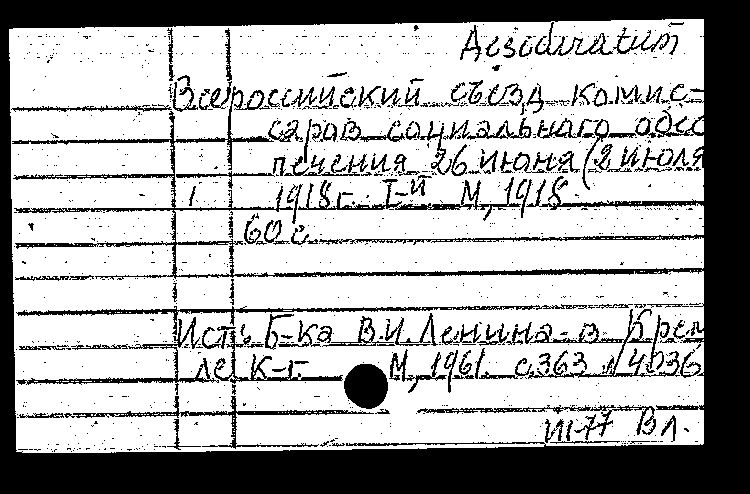 Desideratum
Всероссийский съезд комис-
саров социального обес
печения 26 июня (2 июля
1 1918г. I-й М, 1918.
60 с.
Ист: Б-ка В.И. Ленина в Крем
ле К-г. М, 1961. с.363 №4036
III-77 Вл.